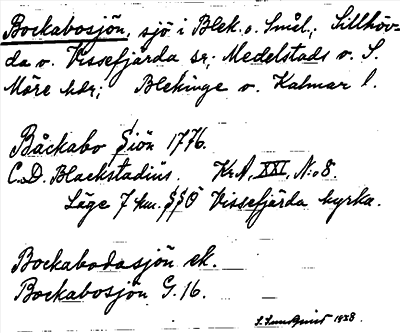 Bockabosjön, sjö i Blek. o. Smål.; Sillhöv-
da o. Vissefjärda sr; Medelstads o. S.
Möre hdr; Blekinge o. Kalmar l.
Båckabo Siön 1776.
C.D. Blackstadius. Kr.A, XXI, N:o 8.
Läge 7 km. SSÖ Vissefjärda kyrka.
Bockabodasjön ek.
Bockabosjön G.16.
S. Sundquist 1938.